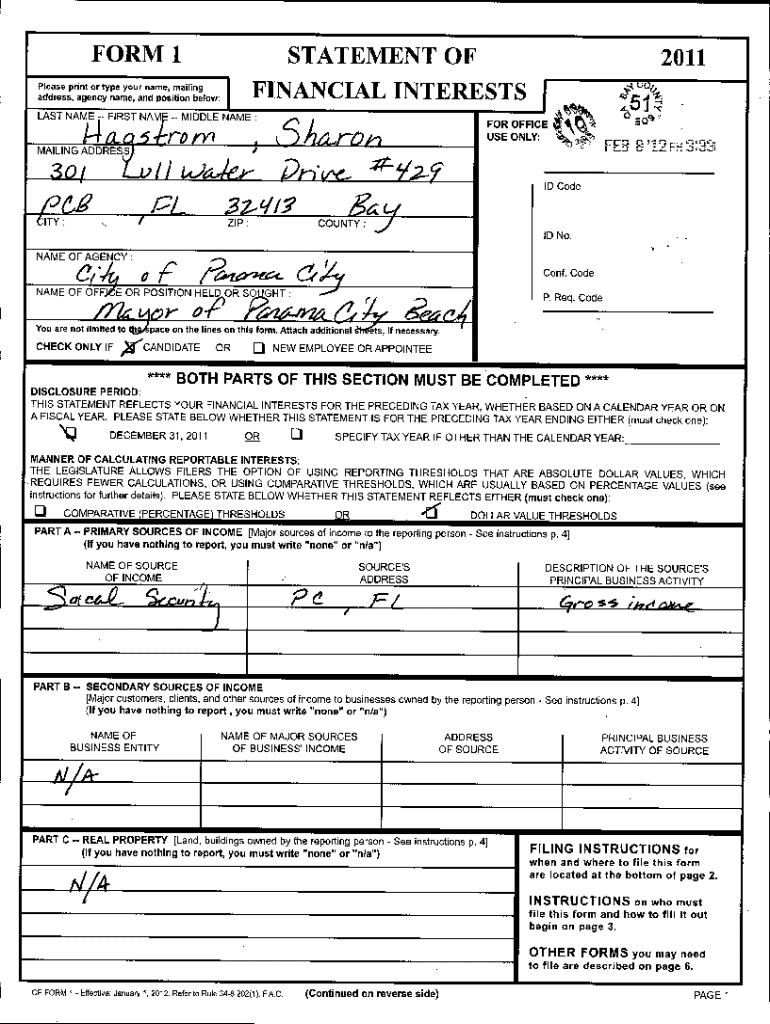 FORM 1
STATEMENT OF
FINANCIAL INTERESTS
2011
Please print or type your name, mailing
address, agency name, and position below:
LAST NAME -- FIRST NAME -- MIDDLE NAME :
Hagstrom , Sharon
MAILING ADDRESS
301 Lullwater Drive #429
PCB , FL 32413 Bay
CITY : ZIP : COUNTY :
NAME OF AGENCY :
City of Panama City
NAME OF OFFICE OR POSITION HELD OR SOUGHT :
Mayor of Panama City Beach
You are not limited to the space on the lines on this form. Attach additional sheets, if necessary.
CHECK ONLY IF CANDIDATE OR NEW EMPLOYEE OR APPOINTEE
FOR OFFICE
USE ONLY:
BAY COUNTY
51
SOE
10
FEB 8 '12 PM 3:33
ID Code
ID No.
Conf. Code
P. Req. Code
**** BOTH PARTS OF THIS SECTION MUST BE COMPLETED ****
DISCLOSURE PERIOD:
THIS STATEMENT REFLECTS YOUR FINANCIAL INTERESTS FOR THE PRECEDING TAX YEAR, WHETHER BASED ON A CALENDAR YEAR OR ON
A FISCAL YEAR. PLEASE STATE BELOW WHETHER THIS STATEMENT IS FOR THE PRECEDING TAX YEAR ENDING EITHER (must check one):
DECEMBER 31, 2011 OR SPECIFY TAX YEAR IF OTHER THAN THE CALENDAR YEAR:
MANNER OF CALCULATING REPORTABLE INTERESTS:
THE LEGISLATURE ALLOWS FILERS THE OPTION OF USING REPORTING THRESHOLDS THAT ARE ABSOLUTE DOLLAR VALUES, WHICH
REQUIRES FEWER CALCULATIONS, OR USING COMPARATIVE THRESHOLDS, WHICH ARE USUALLY BASED ON PERCENTAGE VALUES (see
instructions for further details). PLEASE STATE BELOW WHETHER THIS STATEMENT REFLECTS EITHER (must check one):
COMPARATIVE (PERCENTAGE) THRESHOLDS OR DOLLAR VALUE THRESHOLDS
PART A -- PRIMARY SOURCES OF INCOME [Major sources of income to the reporting person - See instructions p. 4]
(If you have nothing to report, you must write "none" or "n/a")
NAME OF SOURCE
OF INCOME
SOURCE'S
ADDRESS
DESCRIPTION OF THE SOURCE'S
PRINCIPAL BUSINESS ACTIVITY
Socal Security PC , FL Gross income
PART B -- SECONDARY SOURCES OF INCOME
[Major customers, clients, and other sources of income to businesses owned by the reporting person - See instructions p. 4]
(If you have nothing to report , you must write "none" or "n/a")
NAME OF
BUSINESS ENTITY
NAME OF MAJOR SOURCES
OF BUSINESS' INCOME
ADDRESS
OF SOURCE
PRINCIPAL BUSINESS
ACTIVITY OF SOURCE
N/A
PART C -- REAL PROPERTY [Land, buildings owned by the reporting person - See instructions p. 4]
(If you have nothing to report, you must write "none" or "n/a")
N/A
FILING INSTRUCTIONS for
when and where to file this form
are located at the bottom of page 2.
INSTRUCTIONS on who must
file this form and how to fill it out
begin on page 3.
OTHER FORMS you may need
to file are described on page 6.
CE FORM 1 - Effective: January 1, 2012. Refer to Rule 34-8.202(1), F.A.C.
(Continued on reverse side)
PAGE 1